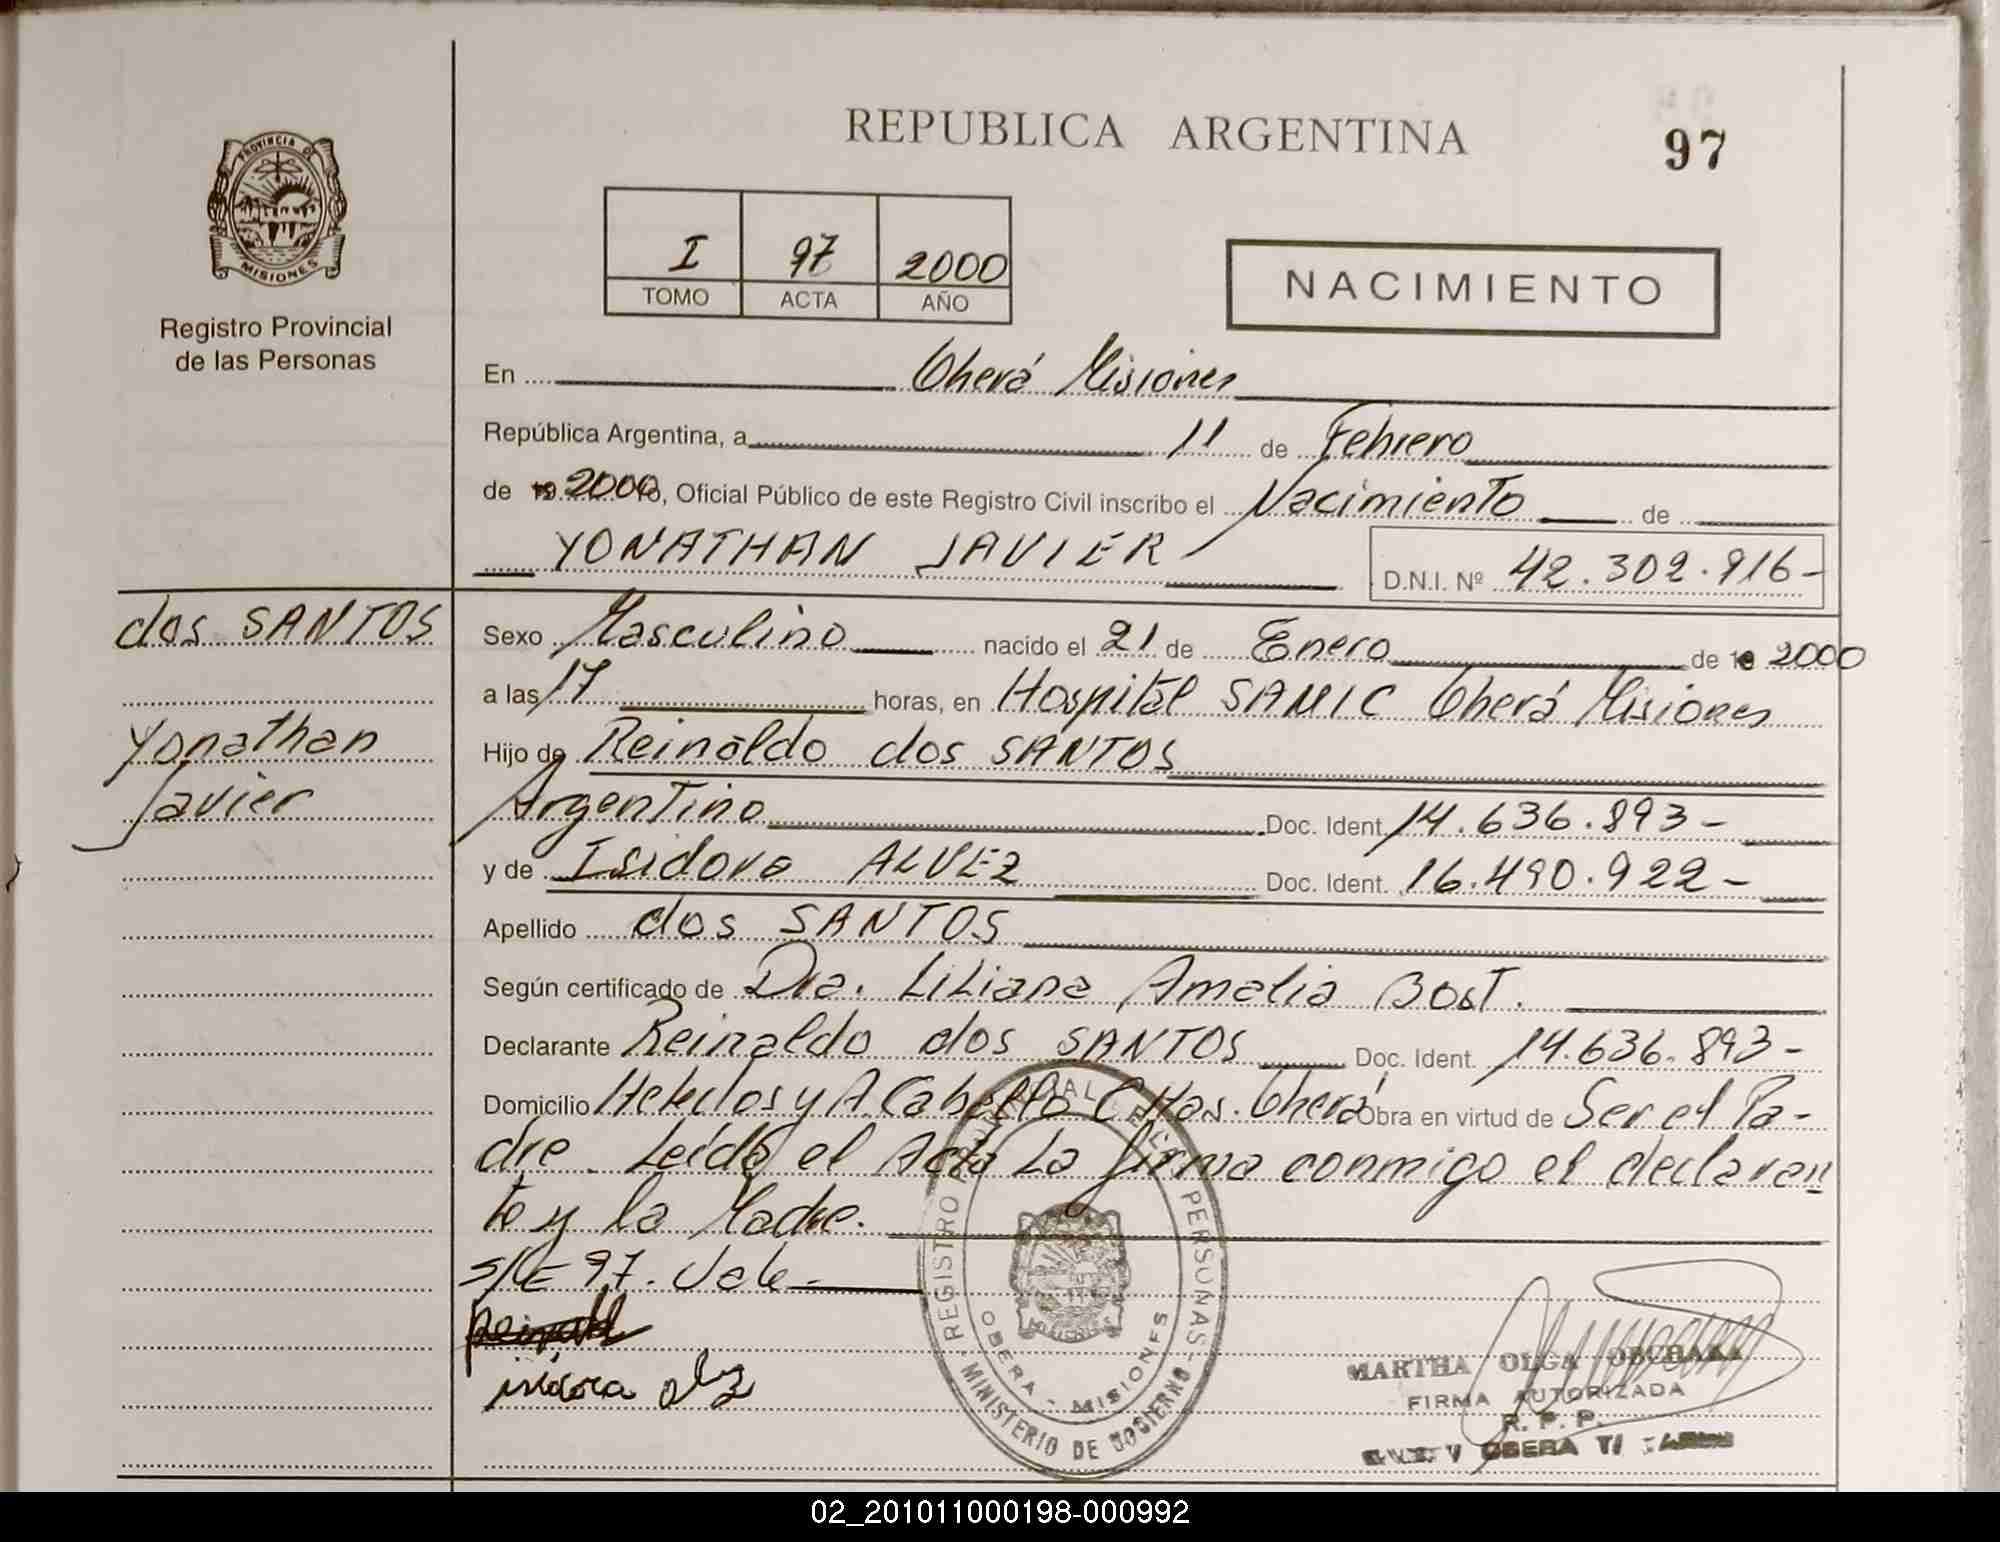 REPUBLICA ARGENTINA
97
PROVINCIA DE
MISIONES
Registro Provincial
de las Personas
I 97 2000
TOMO ACTA AÑO
NACIMIENTO
En Oberá Misiones
República Argentina, a 11 de Febrero
de 19 2000 Yo, Oficial Público de este Registro Civil inscribo el Nacimiento de
YONATHAN JAVIER D.N.I. Nº 42.302.916-
dos SANTOS
Yonathan
Javier
Sexo Masculino nacido el 21 de Enero de 19 2000
a las 17 horas, en Hospital SAMIC Oberá Misiones
Hijo de Reinaldo dos SANTOS
Argentino Doc. Ident. 14.636.893-
y de Isidora ALVEZ Doc. Ident. 16.490.922-
Apellido dos SANTOS
Según certificado de Dra. Liliana Amalia Bost.
Declarante Reinaldo dos SANTOS Doc. Ident. 14.636.893-
Domicilio y A. Cabello Oberá Obra en virtud de Ser el Pa-
dre. Leída el Acta La firma conmigo el declaran
te y la Madre.
S/E 97. Vale-
isidora
REGISTRO PROVINCIAL DE LAS PERSONAS
OBERA - MISIONES
MINISTERIO DE GOBIERNO
MARTHA OLGA
FIRMA AUTORIZADA
R. P. P.
OBERA
02_201011000198-000992